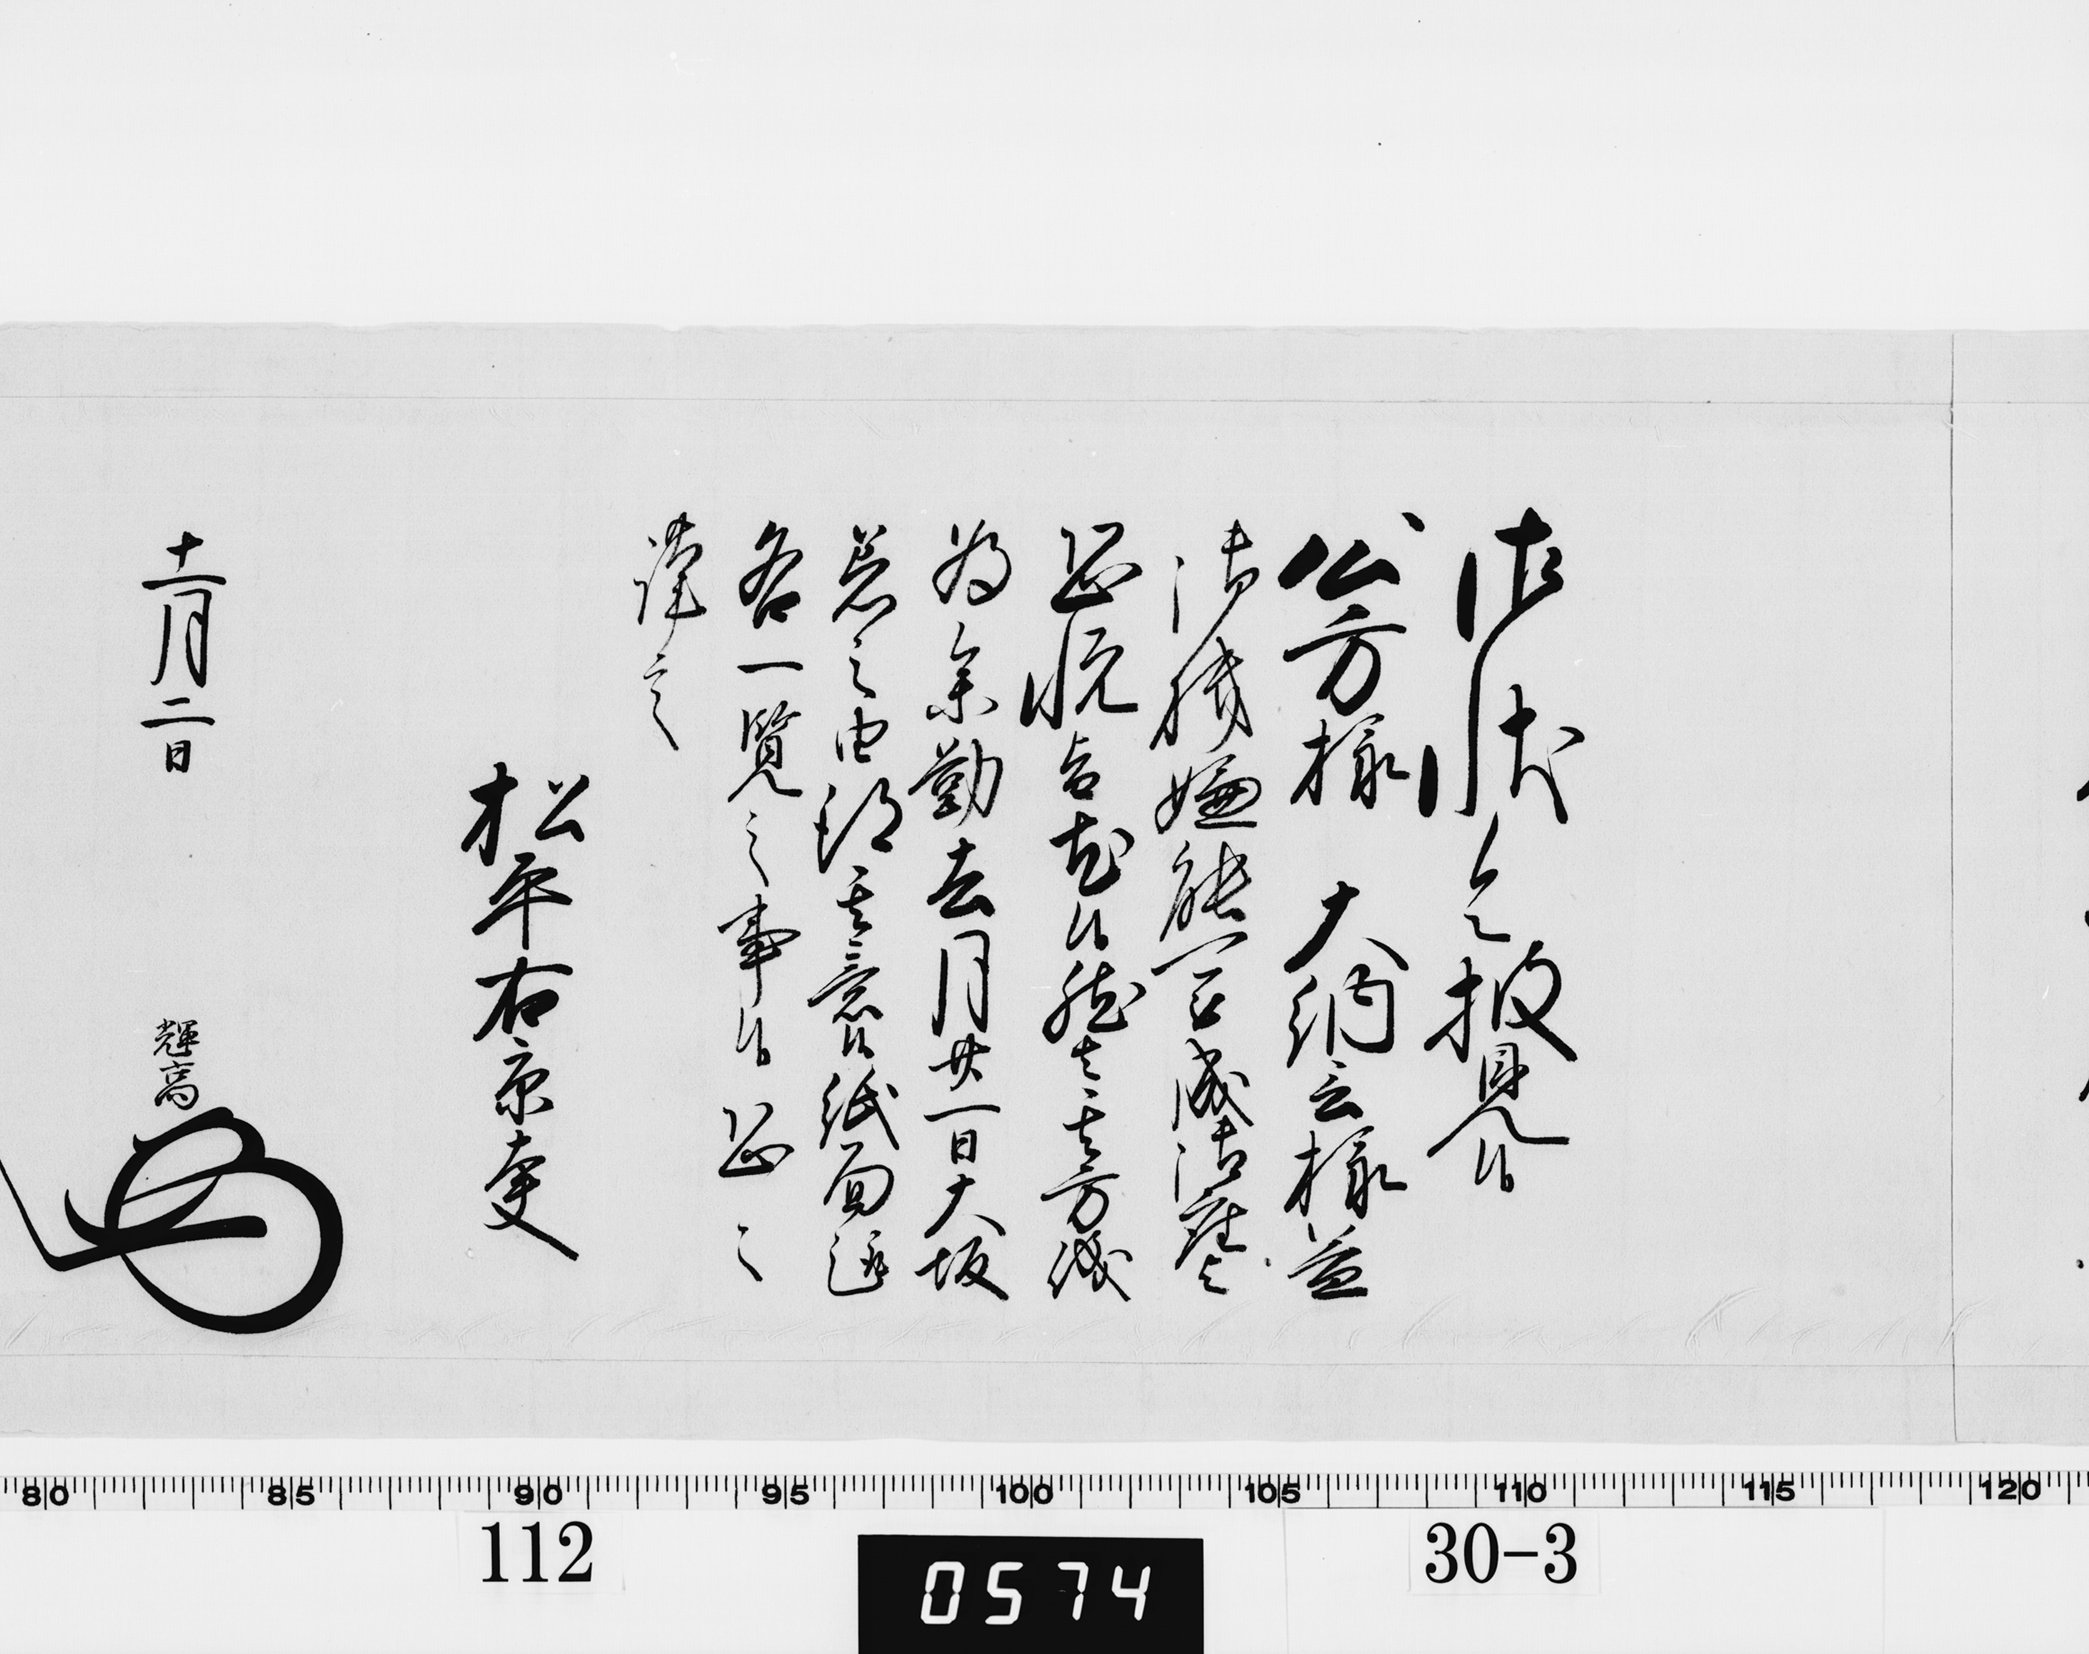 御状令披見候
公方様 大納言様益
御機嫌能可被成御座と
恐悦旨尤候然者其方儀
為参勤去月廿一日大坂
着之由得其意候紙面趣
各一覧之事候恐々
謹言
松平右京大夫
十一月二日
輝高
80 85 90 95 100 105 110 115 120
112
0574
30-3